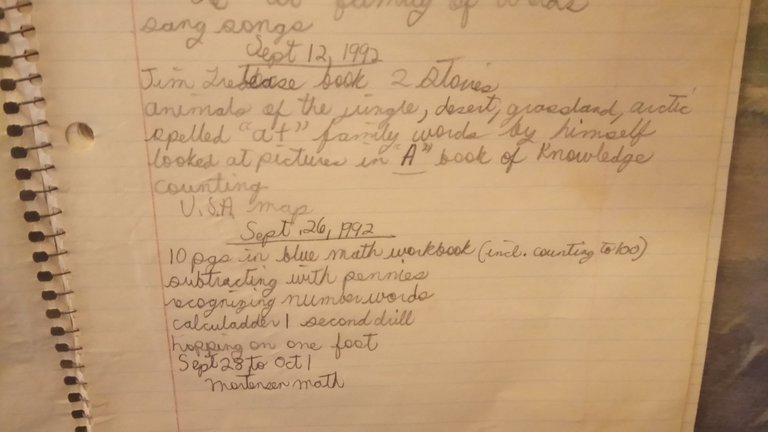 family of words
sang songs
Sept 12, 1992
Jim Trelease book 2 stories
animals of the jungle, desert, grassland, arctic
spelled "at" family words by himself
looked at pictures in "A" book of Knowledge
counting
U.S.A. map
Sept. 26, 1992
10 pgs in blue math workbook (incl. counting to 100)
subtracting with pennies
recognizing number words
calculadder 1 second drill
hopping on one foot
Sept 28 to Oct 1
Mortensen math